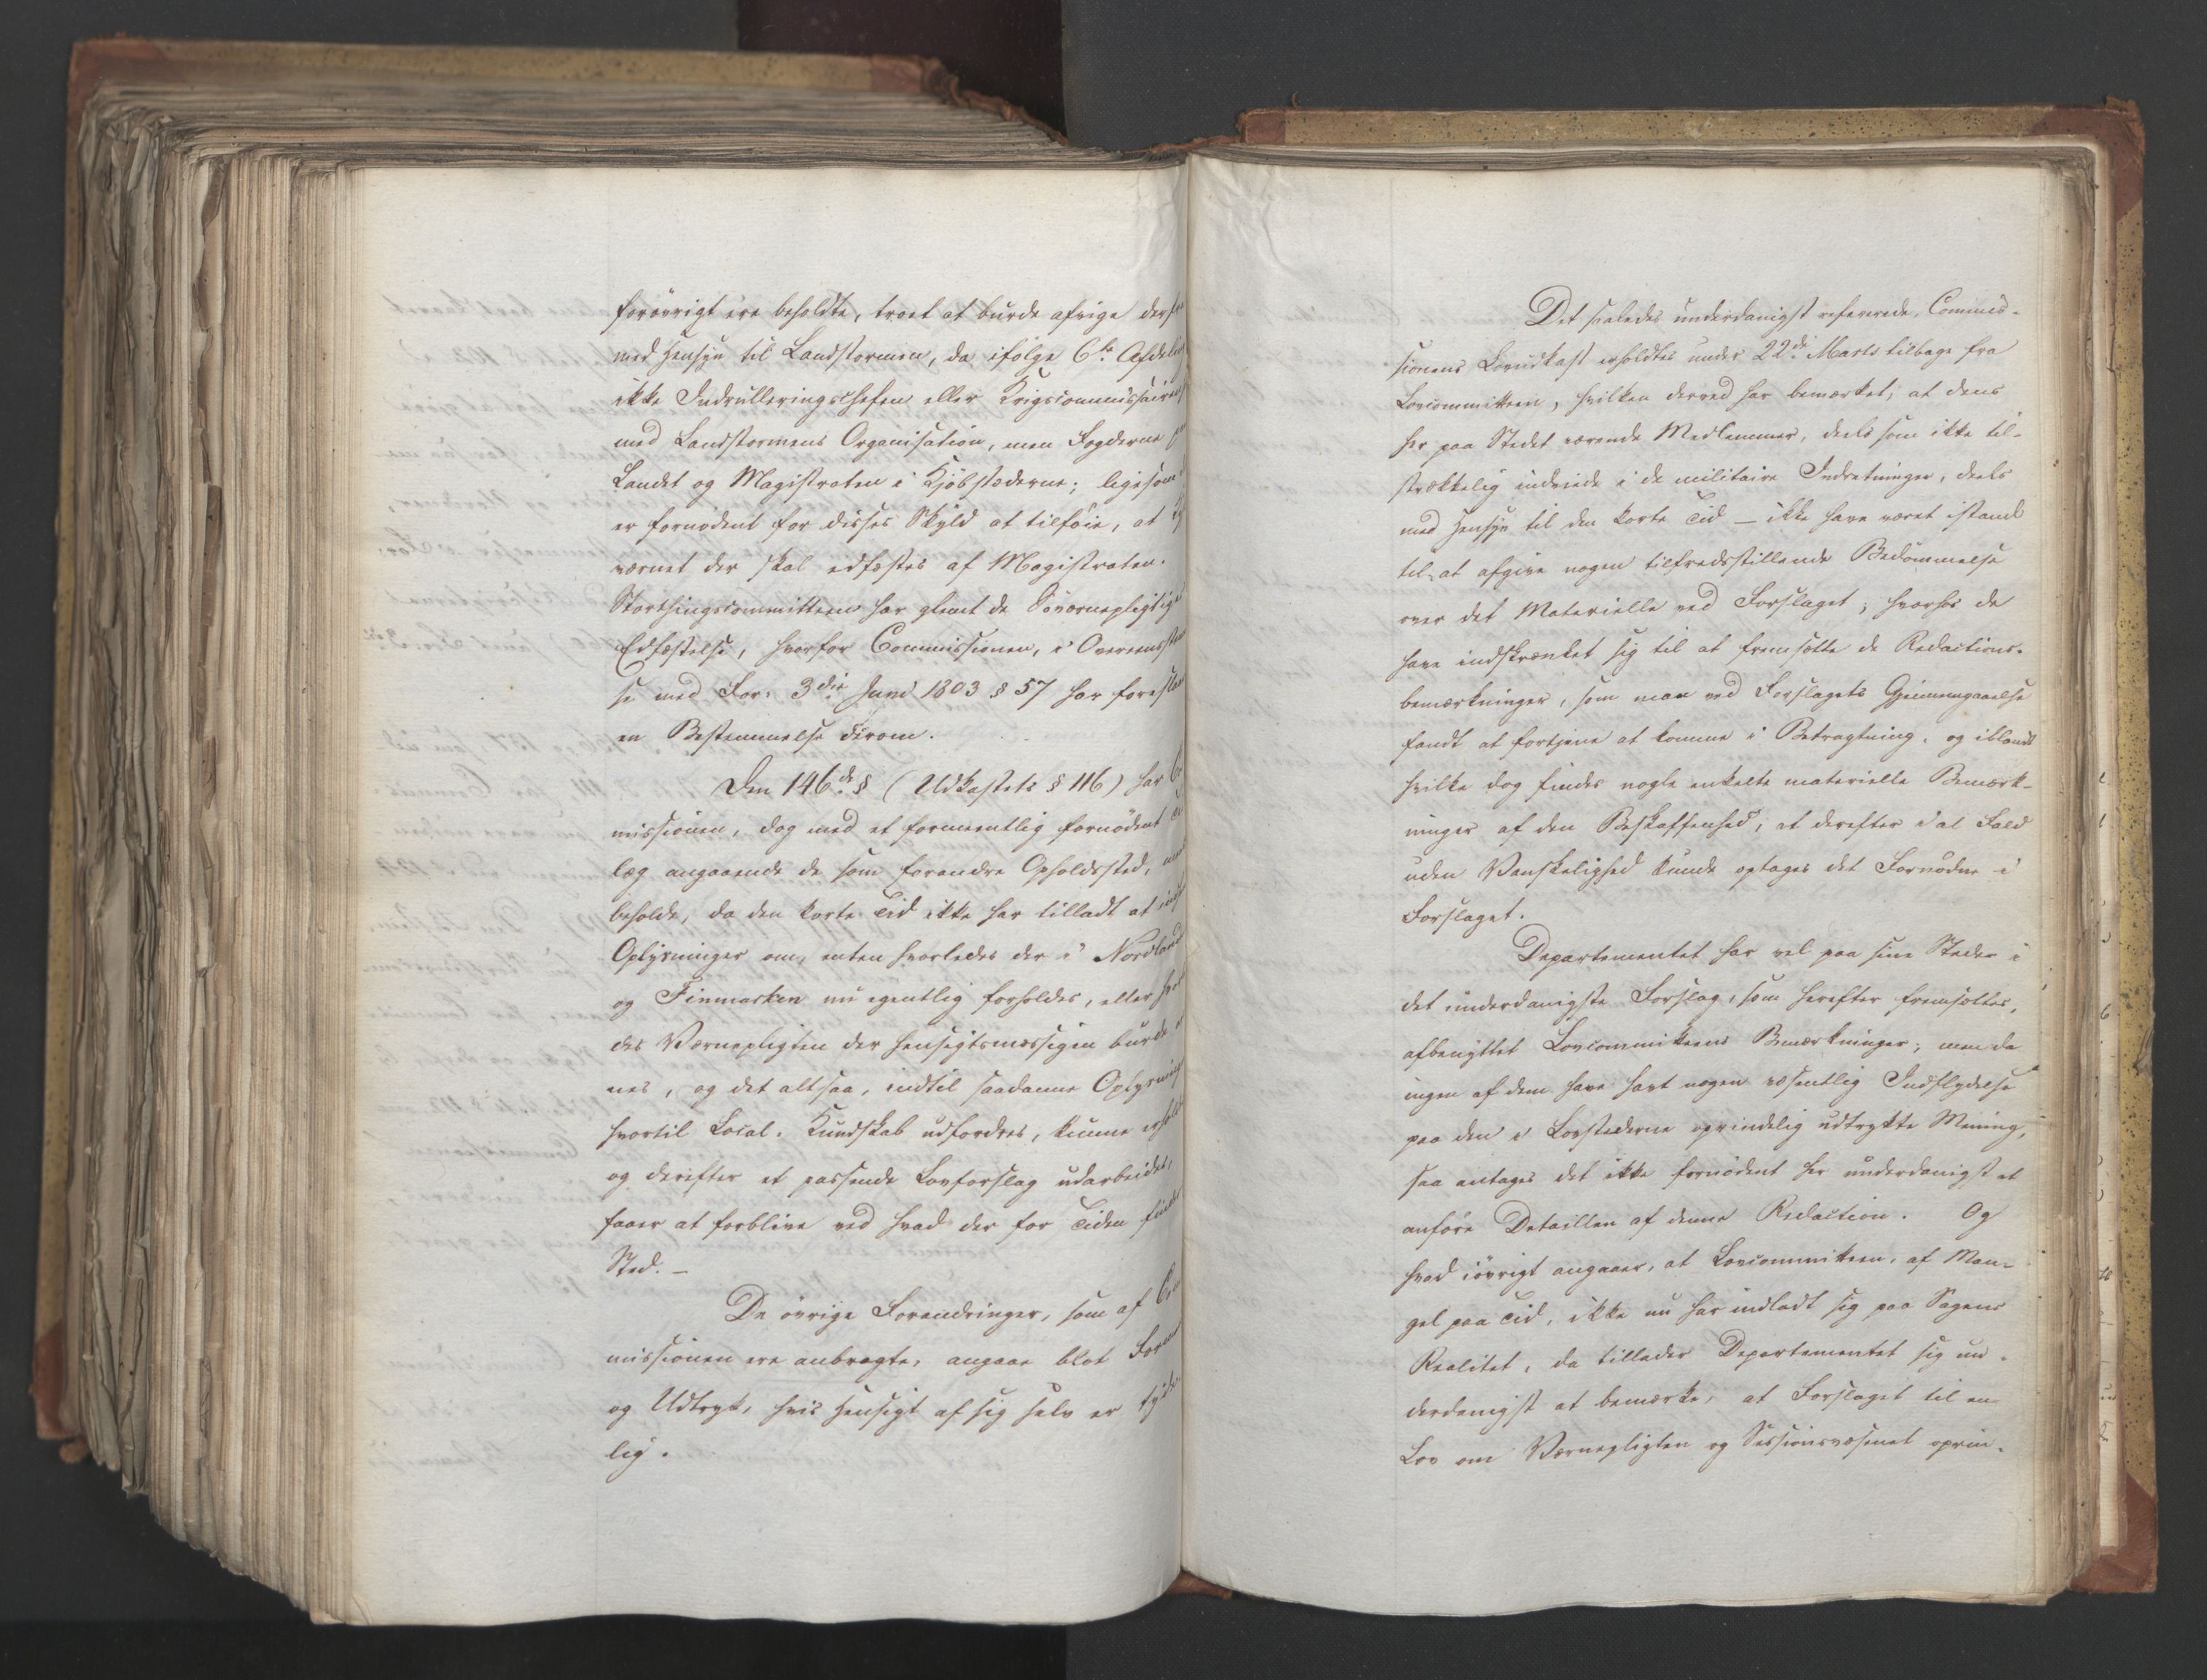 forövrigt ere beholdte, troet at burde afvige derfra
med Hensyn til Landstormen, da ifölge 6te Afdeling
ikke Indrulleringschefen eller Krigscommissairen
med Landstormens Organisation, men Fogderne paa
Landet og Magistraten i Kjöbstæderne; ligesom
er fornödent for disses Skyld at tilföie, at
værnet der skal edfæstes af Magistraten.
Storthingscommitteen har glemt de Söværnepligtiges
Edfæstelse, hvorfor Commissionen, i Overeensstemmel
se med For: 3die Juni 1803 § 57 har foreslaaet
en Bestemmelse derom.
Den 146de § (Udkastets § 116) har Com
missionen, dog med et formeentlig fornödent
læg angaaende de som forandre Opholdssted,
beholdt, da den korte Tid ikke har tilladt at
Oplysninger om, enten hvorledes der i Nordland
og Finmarken nu egentlig forholdes, eller hvor
des Værnepligten der hensigtsmæssigen burde
nes, og det altsaa, indtil saadanne Oplysninger
hvortil Local-Kundskab udfordres, kunne erholdes
og derefter et passende Lovforslag udarbeides,
faaer at forblive ved hvad der for Tiden finder
Sted. –
De övrige Forandringer, som af Com
missionen ere anbragte, angaae blot Formen
og Udtryk, hvis Hensigt af sig selv er tyde-
lig.
Det saaledes underdanigst refererede, Commis-
sionens Lovudkast erholdtes under 22de Marts tilbage fra
Lovcommitteen, hvilken derved har bemærket, at dens
her paa Stedet værende Medlemmer, deels som ikke til-
strækkelig indviede i de militaire Indretninger, deels
med Hensyn til den korte Tid – ikke have været istand
til at afgive nogen tilfredsstillende Bedömmelse
over det Materielle ved Forslaget; hvorfor de
have indskrænket sig til at fremsætte de Redactions-
bemærkninger, som man ved Forslagets Gjennemgaaelse
fandt at fortjene at komme i Betragtning, og iblandt
hvilke dog findes nogle enkelte materielle Bemærk-
ninger af den Beskaffenhed, at derefter i al Fald
uden Vanskelighed kunde optages det Fornödne i
Forslaget.
Departementet har vel paa sine Steder i
det underdanigste Forslag, som herefter fremsættes,
afbenyttet Lovcommitteens Bemærkninger; men da
ingen af dem have havt nogen væsentlig Indflydelse
paa den i Lovstederne oprindelig udtrykte Mening,
saa antages det ikke fornödent her underdanigst at
anföre Detaillen af denne Redaction. Og
hvad iövrigt angaaer, at Lovcommitteen, af Man-
gel paa Tid, ikke nu har indladt sig paa Sagens
Realitet, da tillader Departementet sig un-
derdanigst at bemærke, at Forslaget til en
Lov om Værnepligten og Sessionsvæsenet oprin-